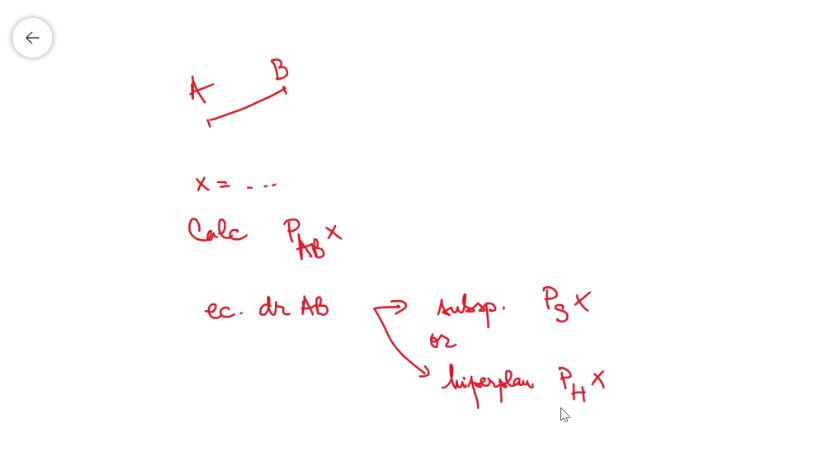 A B
x = - ...
Calc P_AB x
ec. dr AB → subsp. P_S x
or
hiperplan P_H x